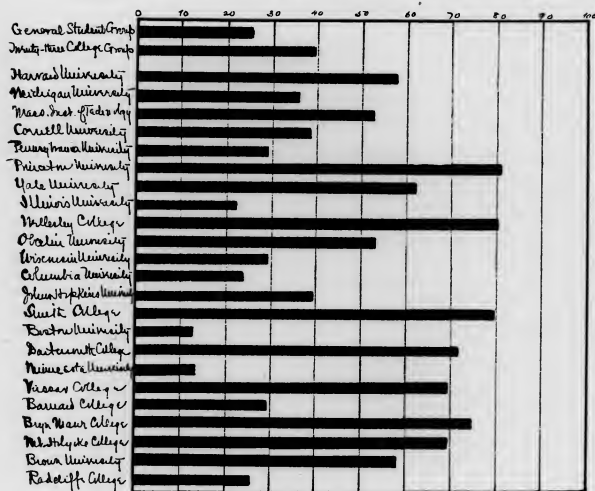 0 10 20 30 40 50 60 70 80 90 100
General Student Group
Twenty-three College Group
Harvard University
Michigan University
Mass. Inst. of Technology
Cornell University
Pennsylvania University
Princeton University
Yale University
Illinois University
Wellesley College
Oberlin University
Wisconsin University
Columbia University
Johns Hopkins University
Smith College
Boston University
Dartmouth College
Minnesota University
Vassar College
Barnard College
Bryn Mawr College
Mt. Holyoke College
Brown University
Radcliffe College